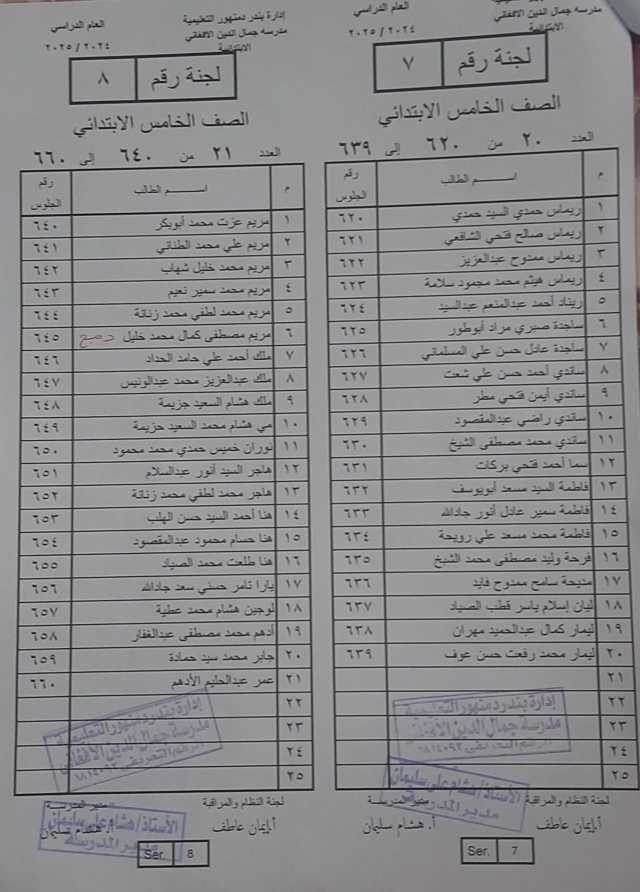 مدرسه جمال الدين الافغاني
الابتدائية
العام الدراسي
٢٠٢٤ / ٢٠٢٥
لجنة رقم ٧
الصف الخامس الابتدائي
العدد ٢٠ من ٦٢٠ إلى ٦٣٩
م اســـــم الطالب رقم الجلوس
١ ريماس حمدي السيد حمدي ٦٢٠
٢ ريماس صالح فتحي الشافعي ٦٢١
٣ ريماس ممدوح عبدالعزيز ٦٢٢
٤ ريماس هيثم محمد محمود سلامة ٦٢٣
٥ ريناد أحمد عبدالمنعم عبدالسيد ٦٢٤
٦ ساجدة صبري مراد أبوطور ٦٢٥
٧ ساجدة عادل حسن علي المسلماني ٦٢٦
٨ ساندي أحمد حسن علي شعت ٦٢٧
٩ ساندي أيمن فتحي مطر ٦٢٨
١٠ ساندي راضي عبدالمقصود ٦٢٩
١١ ساندي محمد مصطفى الشيخ ٦٣٠
١٢ سما أحمد فتحي بركات ٦٣١
١٣ فاطمة السيد مسعد أبويوسف ٦٣٢
١٤ فاطمة سمير عادل أنور جادالله ٦٣٣
١٥ فاطمة محمد مسعد علي رويحة ٦٣٤
١٦ فرحة وليد مصطفى محمد الشيخ ٦٣٥
١٧ مديحة سامح ممدوح فايد ٦٣٦
١٨ ليان إسلام ياسر قطب الصياد ٦٣٧
١٩ ليمار كمال عبدالحميد مهران ٦٣٨
٢٠ ليمار محمد رفعت حسن عوف ٦٣٩
٢١
٢٢
٢٣
٢٤
٢٥
إدارة بندر دمنهور التعليمية
مدرسة جمال الدين الأفغاني
لجنة النظام والمراقبة مدير المدرســـة
الأستاذ/ هشام علي سليمان
مدير المدرسة
أ.إيمان عاطف أ. هشام سليمان
Ser. 7
إدارة بندر دمنهور التعليمية
مدرسه جمال الدين الافغاني
الابتدائية
العام الدراسي
٢٠٢٤ / ٢٠٢٥
لجنة رقم ٨
الصف الخامس الابتدائي
العدد ٢١ من ٦٤٠ إلى ٦٦٠
م اســـــم الطالب رقم الجلوس
١ مريم عزت محمد أبوبكر ٦٤٠
٢ مريم علي محمد الطناني ٦٤١
٣ مريم محمد خليل شهاب ٦٤٢
٤ مريم محمد سمير نعيم ٦٤٣
٥ مريم محمد لطفي محمد زناتة ٦٤٤
٦ مريم مصطفى كمال محمد خليل دمج ٦٤٥
٧ ملك أحمد علي حامد الحداد ٦٤٦
٨ ملك عبدالعزيز محمد عبدالونيس ٦٤٧
٩ ملك هشام السعيد جزيمة ٦٤٨
١٠ مي هشام محمد السعيد حزيمة ٦٤٩
١١ نوران خميس حمدي محمد محمود ٦٥٠
١٢ هاجر السيد أنور عبدالسلام ٦٥١
١٣ هاجر محمد لطفي محمد زناتة ٦٥٢
١٤ هنا أحمد السيد حسن الهلب ٦٥٣
١٥ هنا حسام محمود عبدالمقصود ٦٥٤
١٦ هنا طلعت محمد الصياد ٦٥٥
١٧ يارا تامر حسني سعد جادالله ٦٥٦
١٨ لوجين هشام محمد عطية ٦٥٧
١٩ أدهم محمد مصطفى عبدالغفار ٦٥٨
٢٠ جابر محمد سيد حمادة ٦٥٩
٢١ عمر عبدالحليم الأدهم ٦٦٠
٢٢
٢٣
٢٤
٢٥
إدارة بندر دمنهور التعليمية
مدرسة جمال الدين الأفغاني
لجنة النظام والمراقبة مدير المدرســـة
الأستاذ/ هشام علي سليمان
مدير المدرسة
أ.إيمان عاطف أ. هشام سليمان
Ser. 8